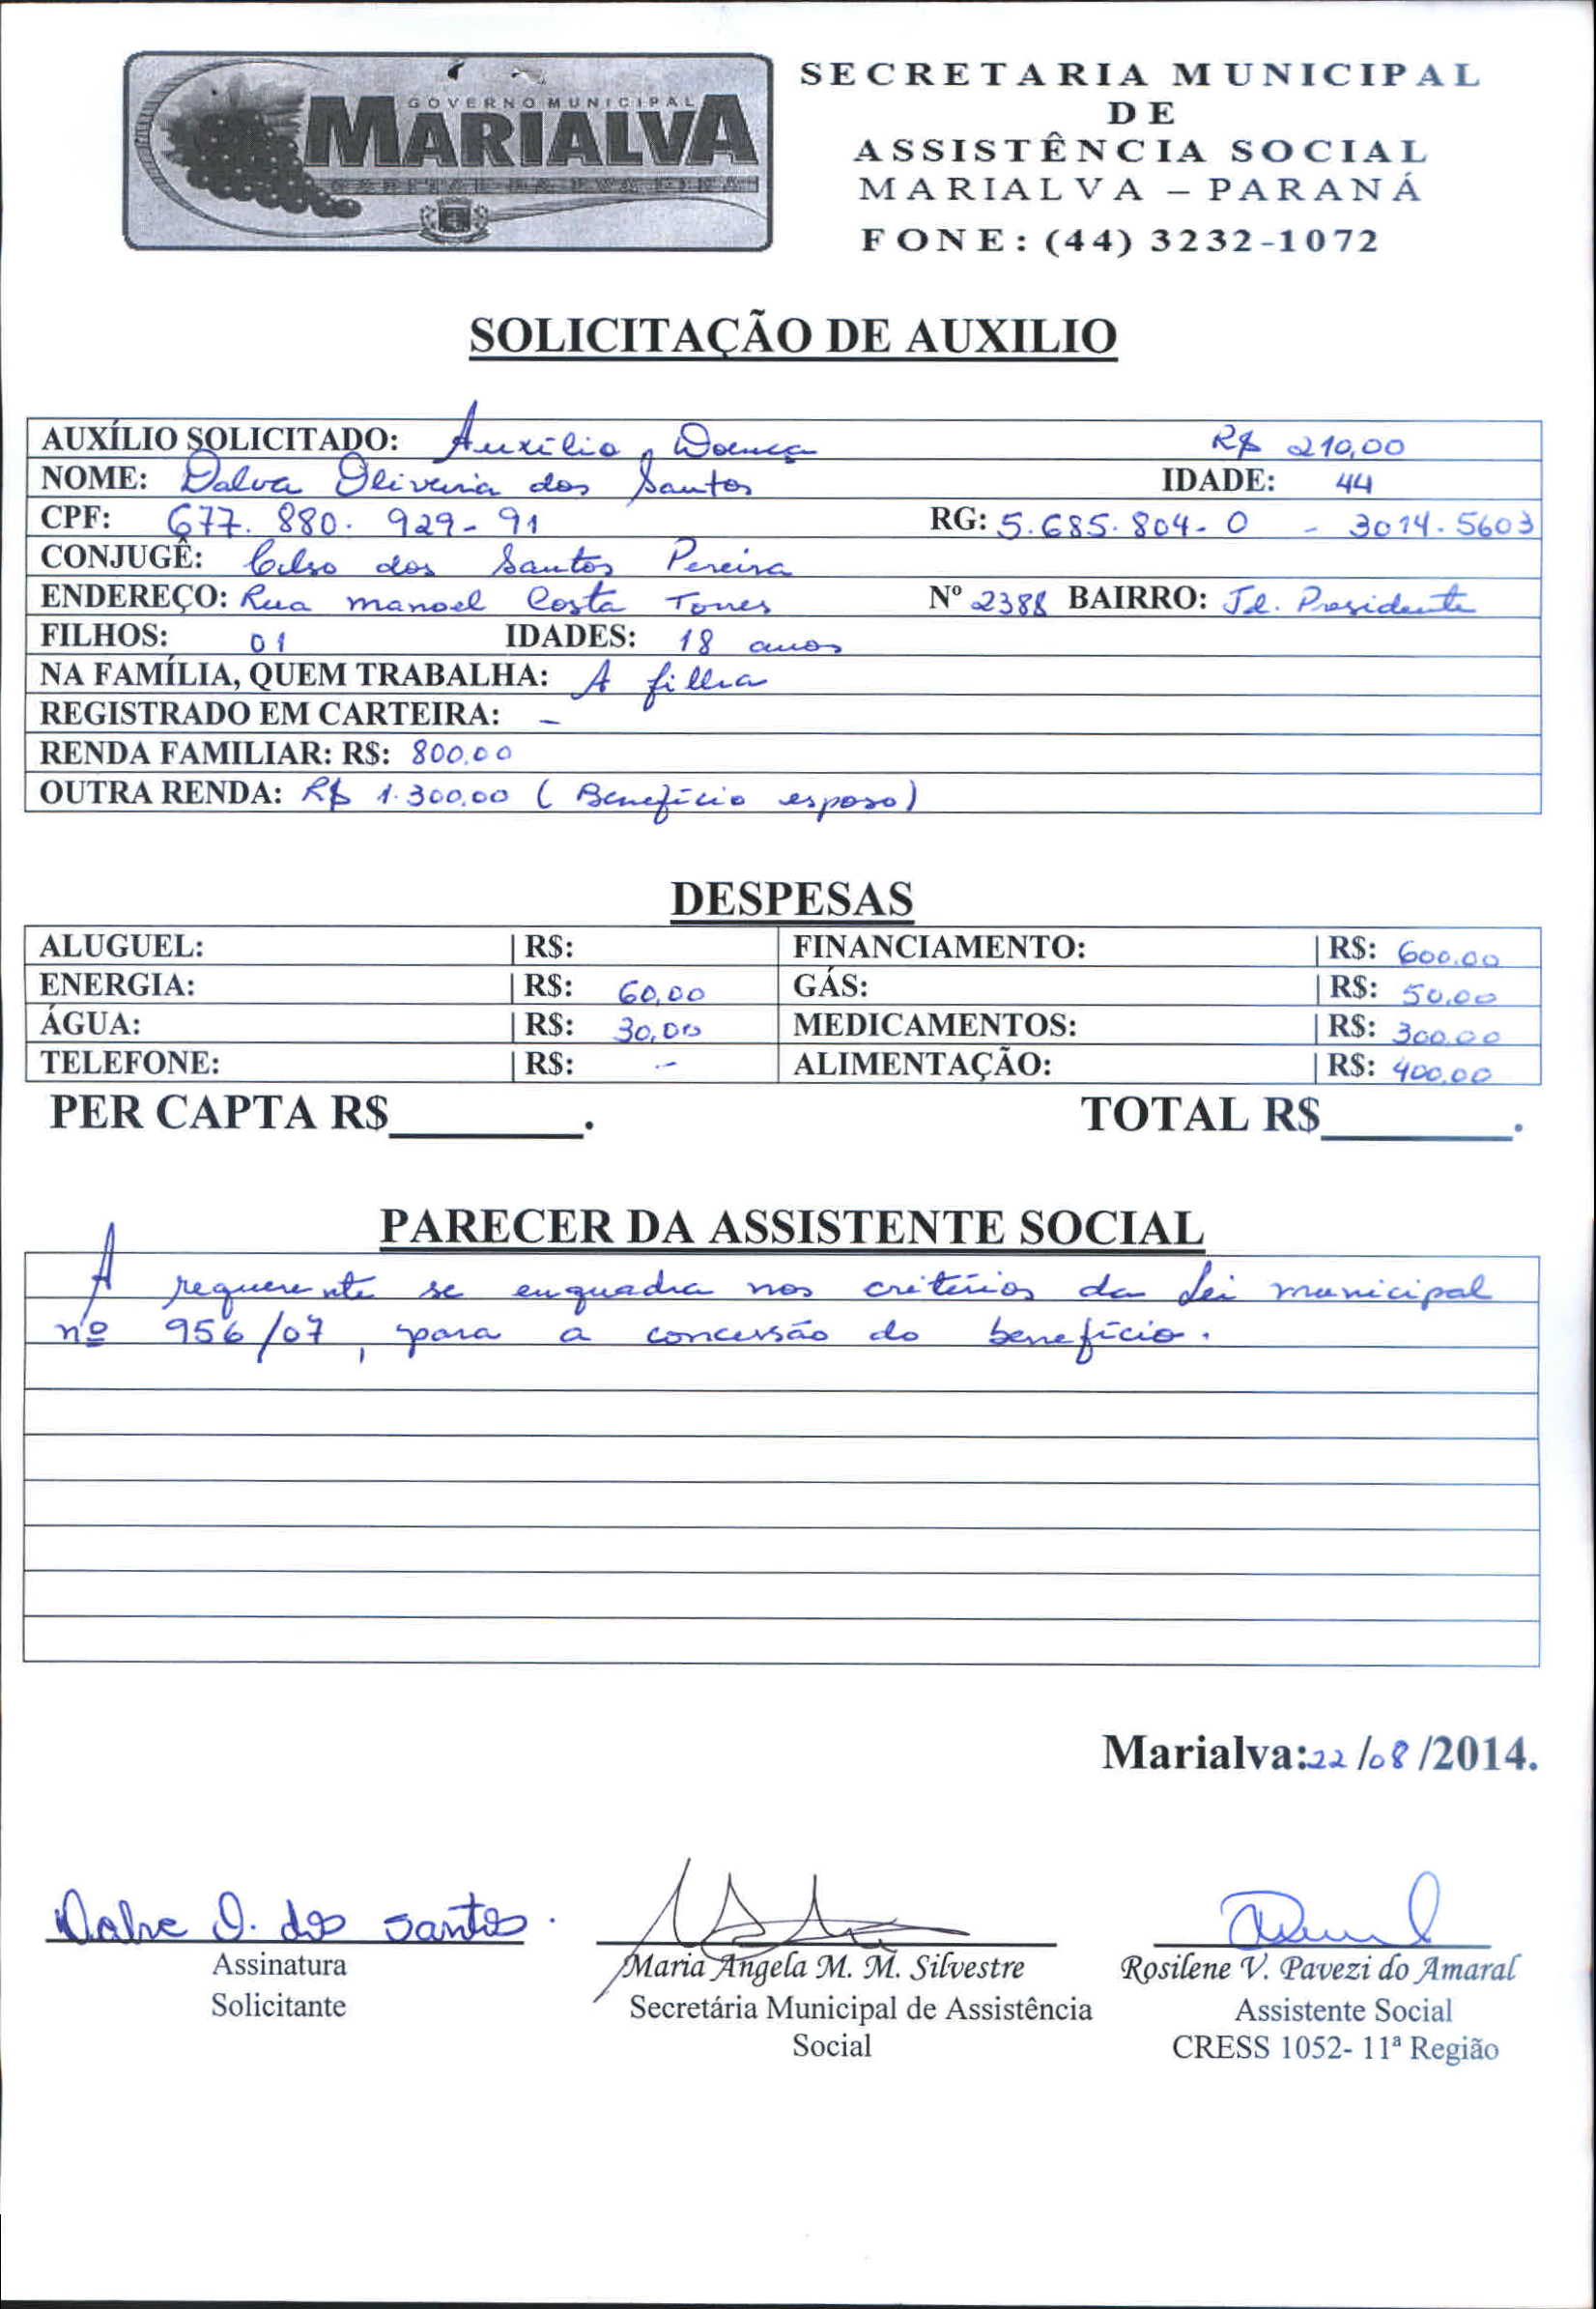 GOVERNO MUNICIPAL
MARIALVA
SECRETARIA MUNICIPAL
DE
ASSISTÊNCIA SOCIAL
MARIALVA – PARANÁ
FONE: (44) 3232-1072
SOLICITAÇÃO DE AUXILIO
AUXÍLIO SOLICITADO: Auxílio Doença R$ 210,00
NOME: Dalva Oliveira dos Santos IDADE: 44
CPF: 677.880.929-91 RG: 5.685.804-0 - 3014.5603
CONJUGÊ: Celso dos Santos Pereira
ENDEREÇO: Rua Manoel Costa Torres Nº 2388 BAIRRO: Jd. Presidente
FILHOS: 01 IDADES: 18 anos
NA FAMÍLIA, QUEM TRABALHA: A filha
REGISTRADO EM CARTEIRA: -
RENDA FAMILIAR: R$: 800,00
OUTRA RENDA: R$ 1.300,00 ( Benefício esposo)
DESPESAS
ALUGUEL: | R$: FINANCIAMENTO: | R$: 600,00
ENERGIA: | R$: 60,00 GÁS: | R$: 50,00
ÁGUA: | R$: 30,00 MEDICAMENTOS: | R$: 300,00
TELEFONE: | R$: - ALIMENTAÇÃO: | R$: 400,00
PER CAPTA R$________. TOTAL R$________.
PARECER DA ASSISTENTE SOCIAL
A requerente se enquadra nos critérios da Lei municipal
nº 956/07, para a concessão do benefício.
Marialva:22/08/2014.
Dalva O. dos Santos.
Assinatura
Solicitante
Maria Angela M. M. Silvestre
Secretária Municipal de Assistência
Social
Rosilene V. Pavezi do Amaral
Assistente Social
CRESS 1052- 11ª Região